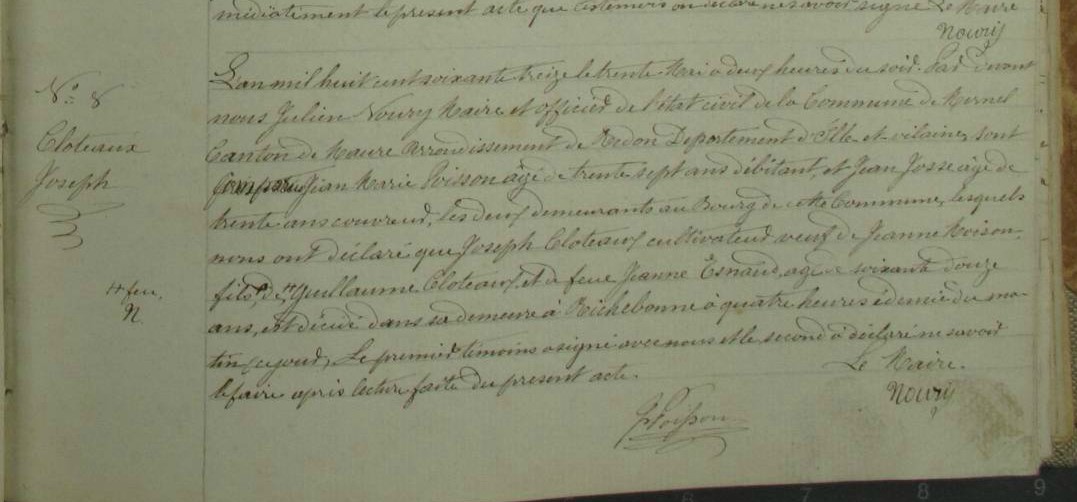 médiatement le present acte que les temoins on déclaré ne savoir signé Le Maire
Noury
N.° 8
Cloteaux
Joseph
L'an mil huit cent soixante treize le trente Mai à deux heures du soir. Par devant
nous Julien Noury Maire et officier de l'état civil de la Commune de Mernel
Canton de Maure Arrondissement de Redon Departement d'Ille et vilaine, sont
comparu Jean Marie Poisson agé de trente sept ans débitant, et Jean Josse agé de
trente ans couvreur, les deux demeurants au Bourg de cette Commune, lesquels
nous ont déclaré que Joseph Cloteaux cultivateur veuf de Jeanne Moison,
fils de ++ Guillaume Cloteaux et de feue Jeanne Esnaud, agé de soixante douze
++ feu,
N.
ans, est décédé dans sa demeure à Richebonne à quatre heures é demie du ma-
tin, ce jour, Le premier témoins a signé avec nous et le second à déclaré ne savoir
le faire après lecture faite du present acte.
Le Maire.
Noury
Poisson
6 7 8 9